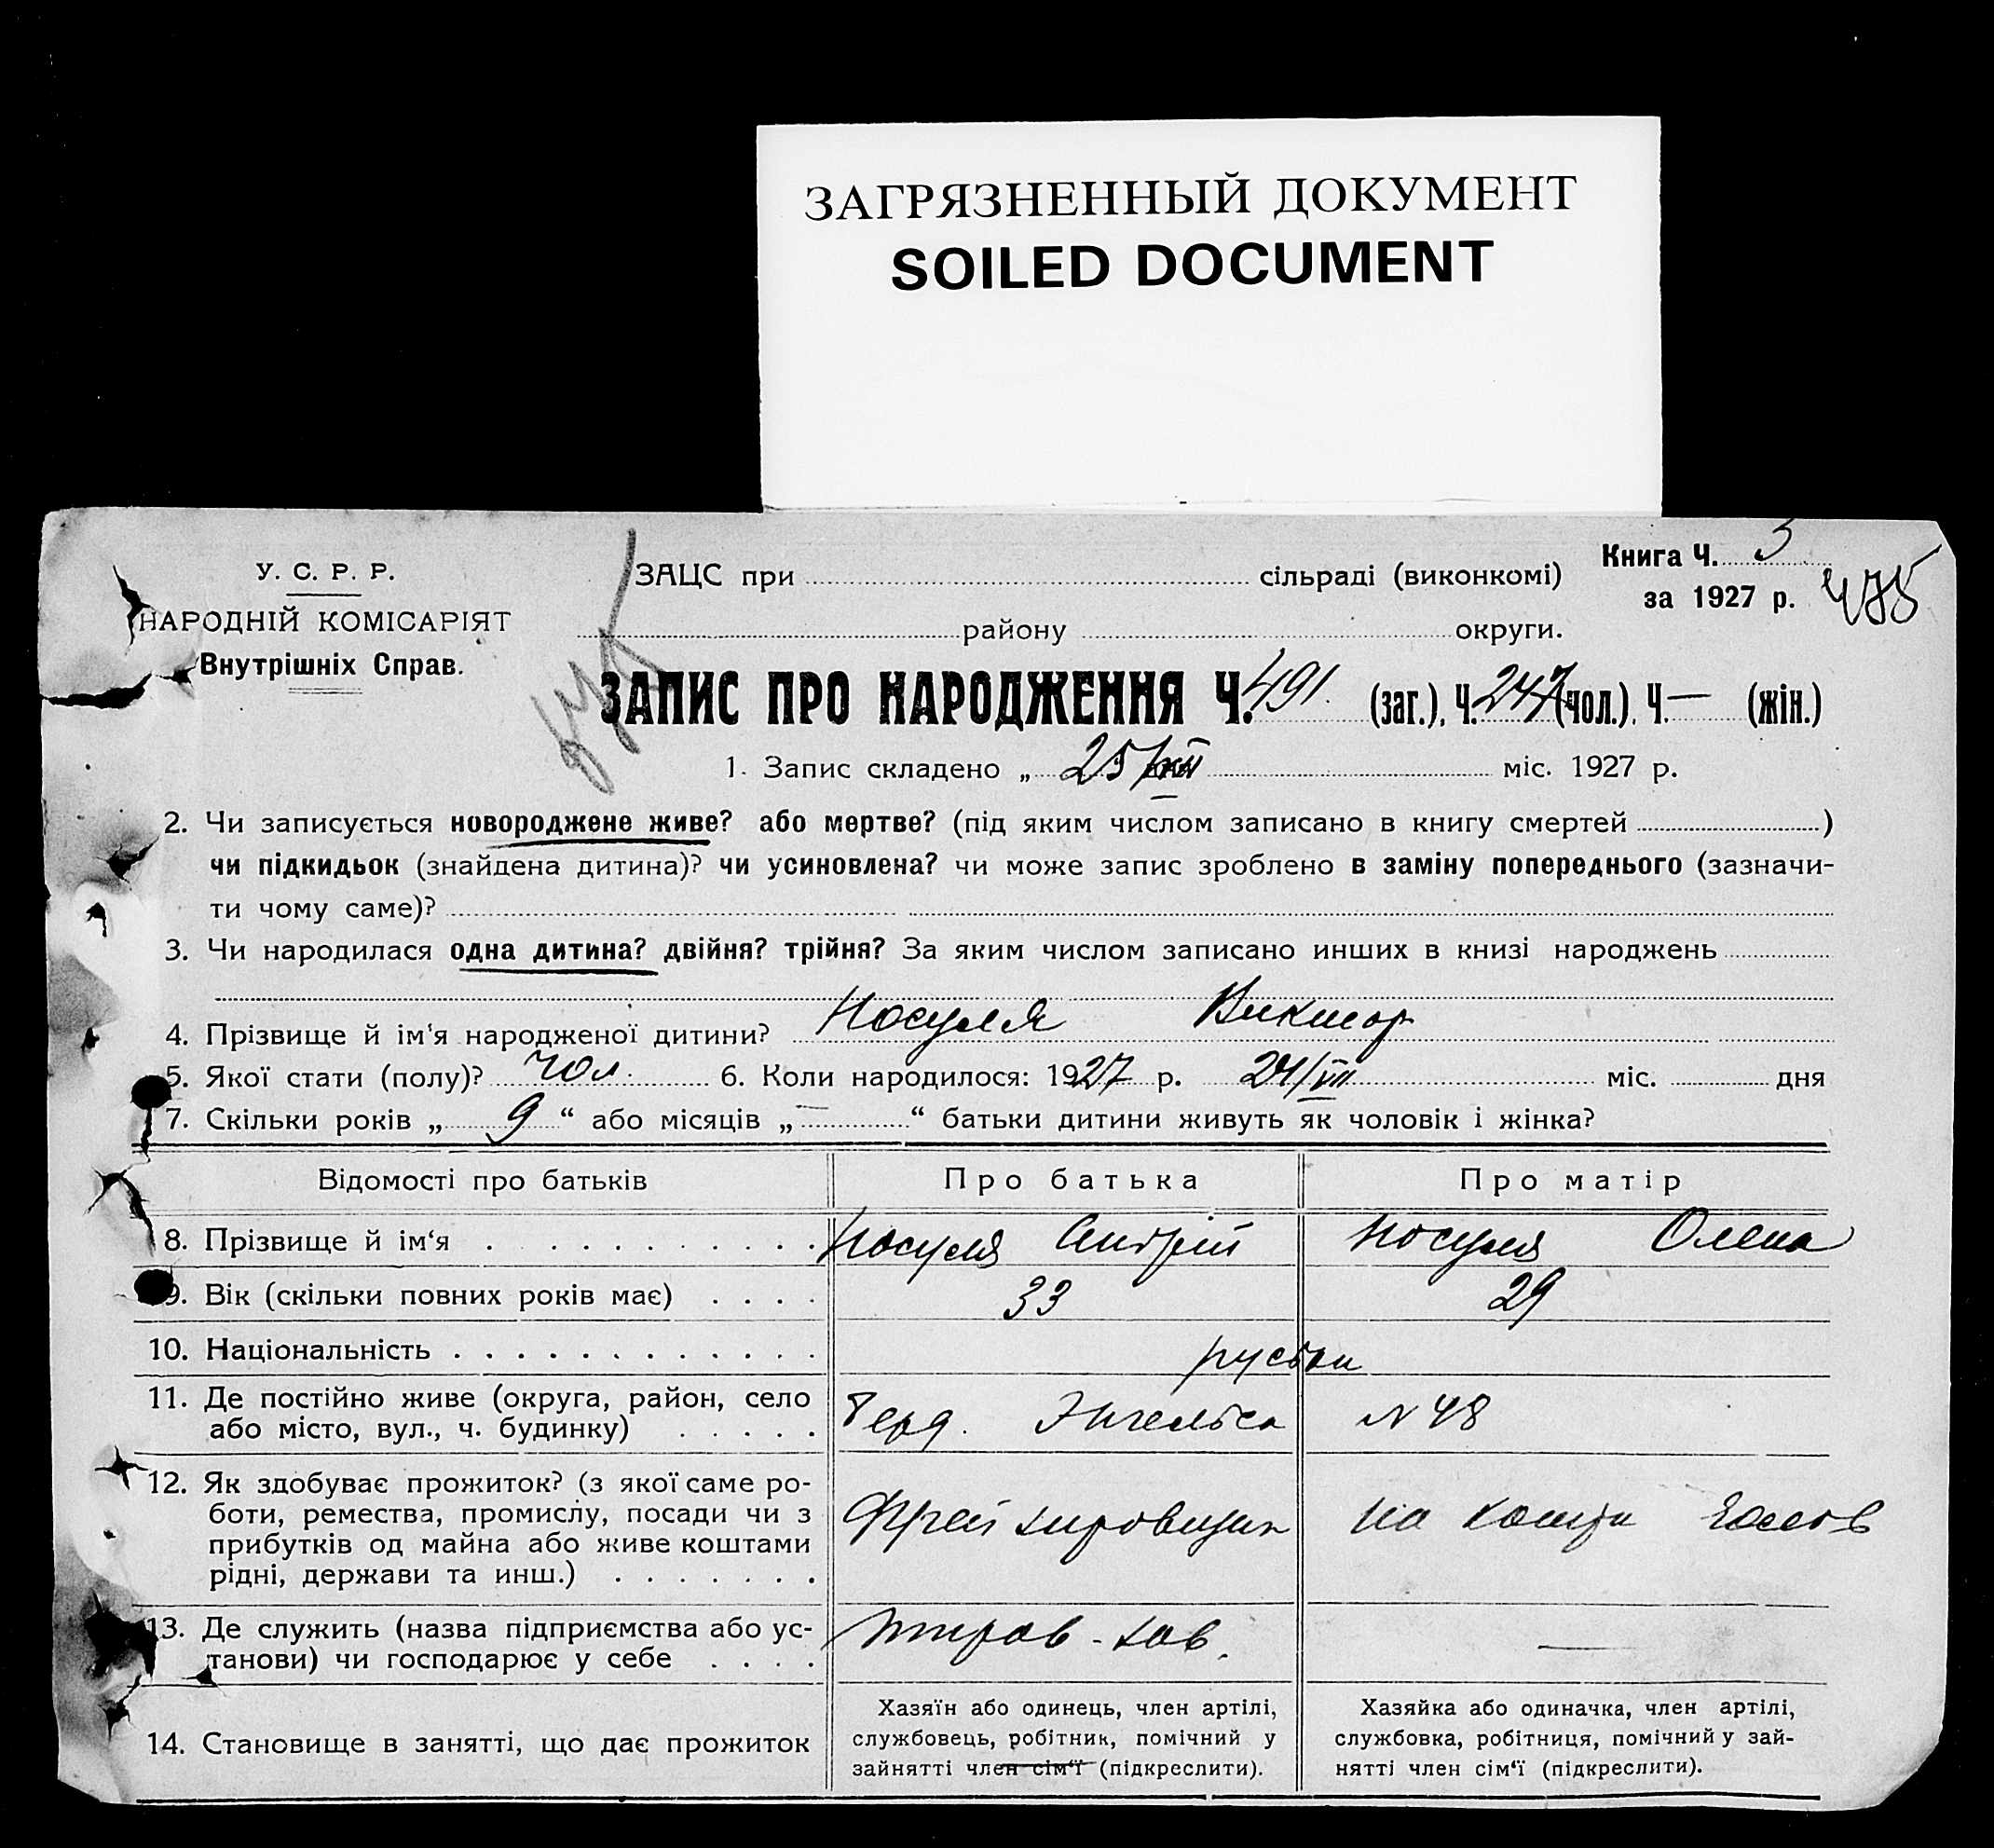 ЗАГРЯЗНЕННЫЙ ДОКУМЕНТ
SOILED DOCUMENT
У. С. Р. Р.
НАРОДНІЙ КОМІСАРІЯТ
Внутрішніх Справ.
Книга Ч. 3
за 1927 р. 475
ЗАЦС при сільраді (виконкомі)
району округи.
ЗАПИС ПРО НАРОДЖЕННЯ Ч. 491. (заг.), Ч. 247 (чол.), Ч. — (жін.)
1. Запис складено „ 25/XII міс. 1927 р.
2. Чи записується новороджене живе? або мертве? (під яким числом записано в книгу смертей )
чи підкидьок (знайдена дитина)? чи усиновлена? чи може запис зроблено в заміну попереднього (зазначи-
ти чому саме)?
3. Чи народилася одна дитина? двійня? трійня? За яким числом записано инших в книзі народжень
4. Прізвище й ім‘я народженої дитини? Носуля Виктор
5. Якої стати (полу)? чол. 6. Коли народилося: 1927 р. 24/VII міс. дня
7. Скільки років „ 9 “ або місяців „ — “ батьки дитини живуть як чоловік і жінка?
Відомості про батьків Про батька Про матір
8. Прізвище й ім‘я Носуля Андрій Носуля Олена
9. Вік (скільки повних років має) 33 29
10. Національність
11. Де постійно живе (округа, район, село
або місто, вул., ч. будинку) Энгельса N 48
12. Як здобуває прожиток? (з якої саме ро-
боти, ремества, промислу, посади чи з
прибутків од майна або живе коштами
рідні, держави та инш.) на кошти
13. Де служить (назва підприємства або ус-
танови) чи господарює у себе —
14. Становище в занятті, що дає прожиток
Хазяїн або одинець, член артілі,
службовець, робітник, помічний у
зайнятті член сім‘ї (підкреслити).
Хазяйка або одиначка, член артілі,
службовка, робітниця, помічний у зай-
нятті член сім‘ї (підкреслити).